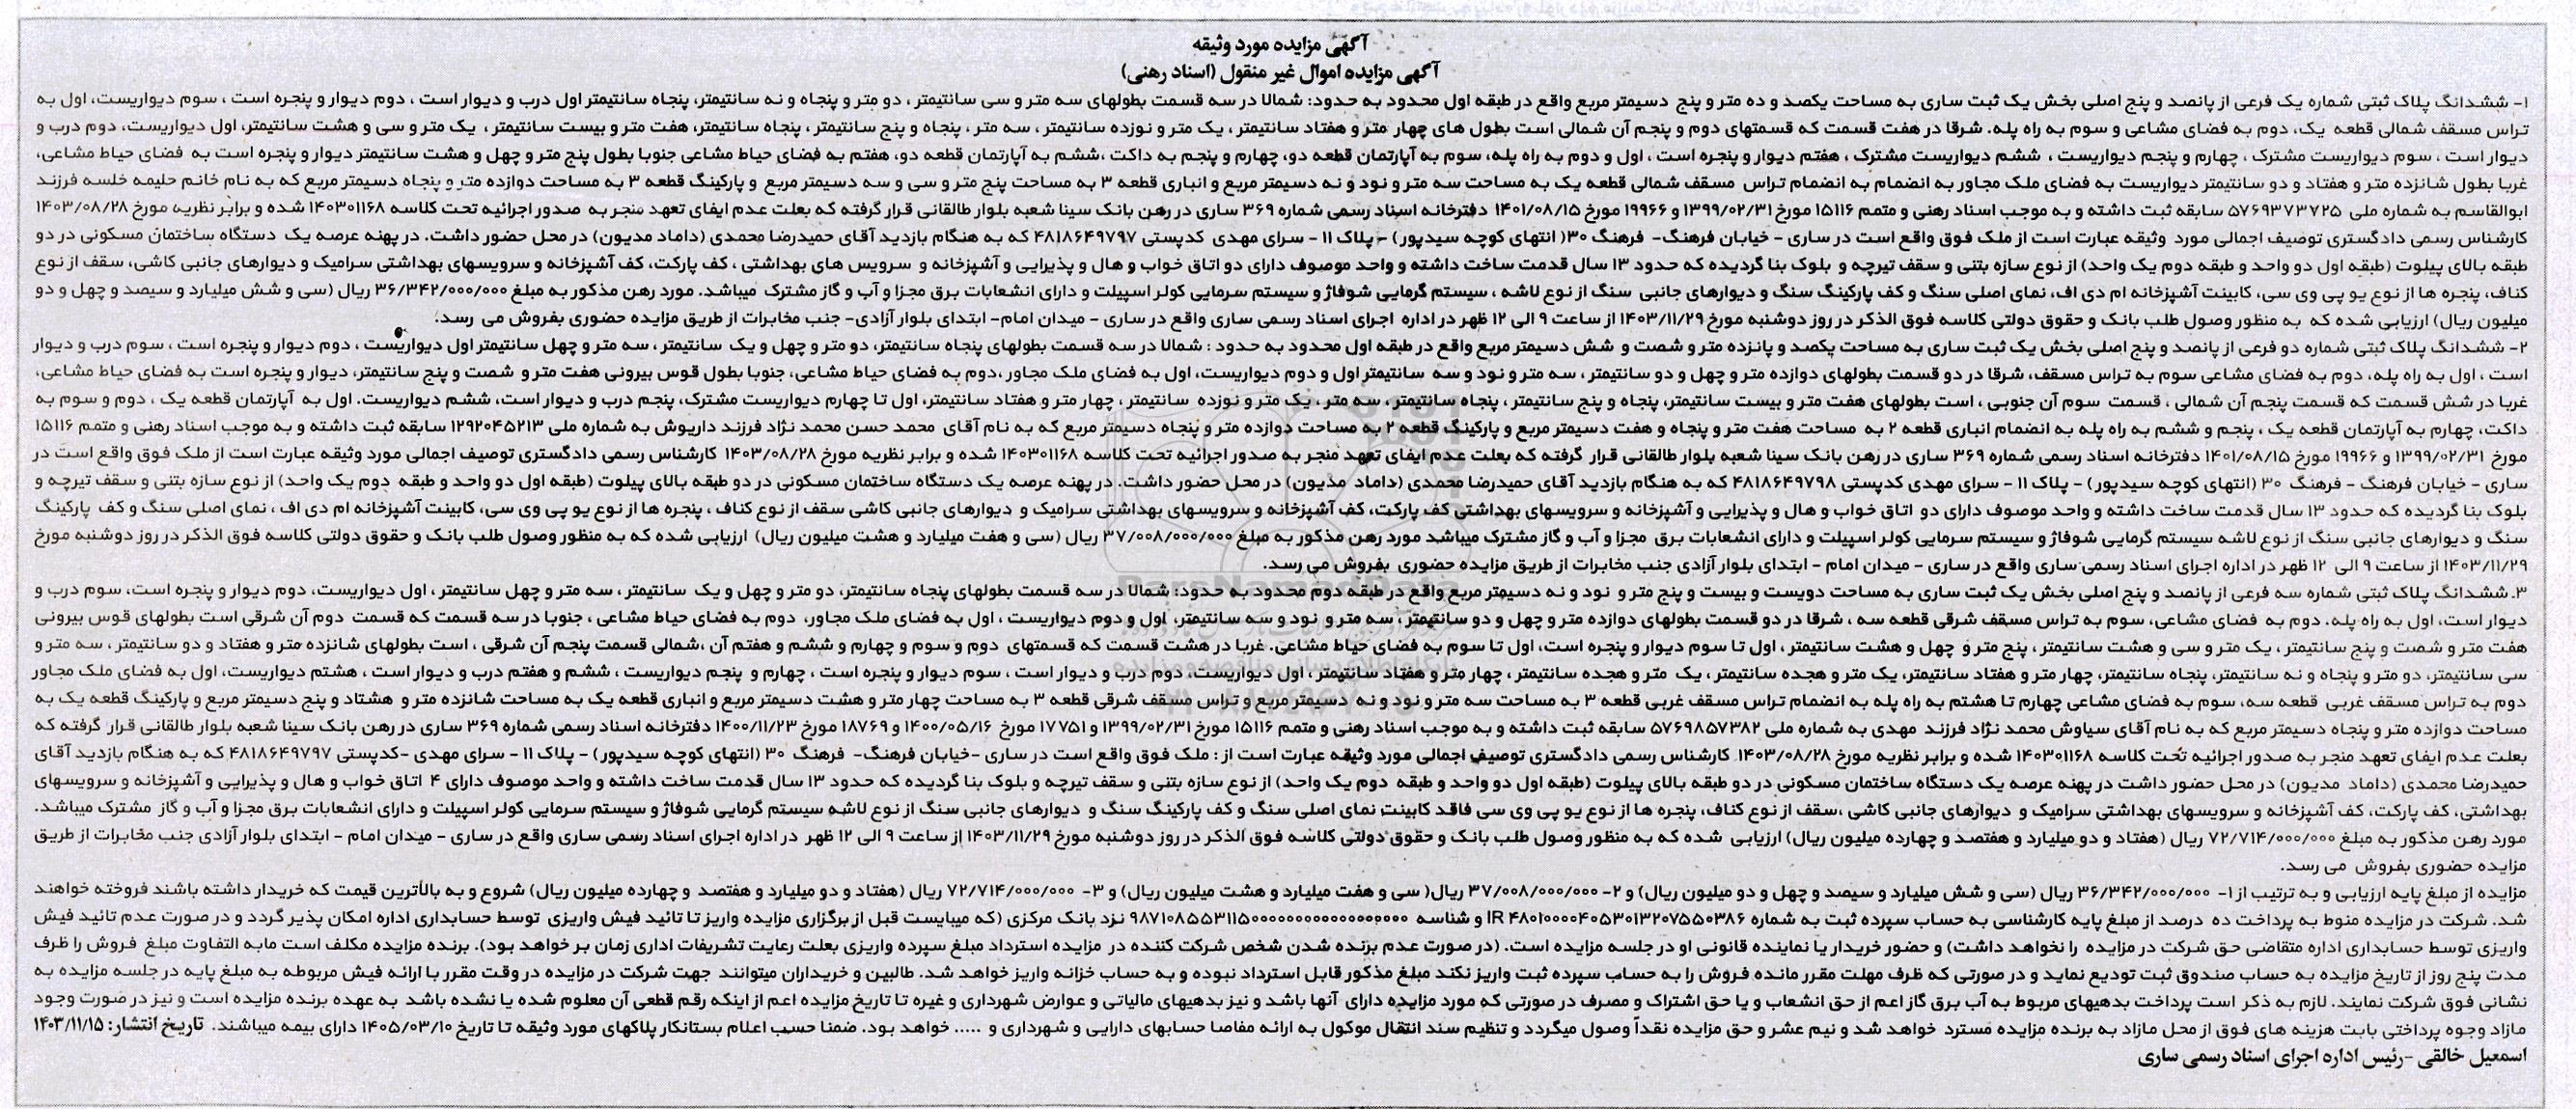 آگهی مزایده مورد وثیقه
آگهی مزایده اموال غیر منقول (اسناد رهنی)
۱- ششدانگ پلاک ثبتی شماره یک فرعی از پانصد و پنج اصلی بخش یک ثبت ساری به مساحت یکصد و ده متر و پنج دسیمتر مربع واقع در طبقه اول محدود به حدود: شمالا در سه قسمت بطولهای سه متر و سی سانتیمتر ، دو متر و پنجاه و نه سانتیمتر، پنجاه سانتیمتر اول درب و دیوار است ، دوم دیوار و پنجره است ، سوم دیواریست، اول به
تراس مسقف شمالی قطعه یک، دوم به فضای مشاعی و سوم به راه پله. شرقا در هفت قسمت که قسمتهای دوم و پنجم آن شمالی است بطول های چهار متر و هفتاد سانتیمتر ، یک متر و نوزده سانتیمتر ، سه متر ، پنجاه و پنج سانتیمتر ، پنجاه سانتیمتر، هفت متر و بیست سانتیمتر ، یک متر و سی و هشت سانتیمتر، اول دیواریست، دوم درب و
دیوار است ، سوم دیواریست مشترک ، چهارم و پنجم دیواریست ، ششم دیواریست مشترک ، هفتم دیوار و پنجره است ، اول و دوم به راه پله، سوم به آپارتمان قطعه دو، چهارم و پنجم به داکت ،ششم به آپارتمان قطعه دو، هفتم به فضای حیاط مشاعی جنوبا بطول پنج متر و چهل و هشت سانتیمتر دیوار و پنجره است به فضای حیاط مشاعی،
غربا بطول شانزده متر و هفتاد و دو سانتیمتر دیواریست به فضای ملک مجاور به انضمام به انضمام تراس مسقف شمالی قطعه یک به مساحت سه متر و نود و نه دسیمتر مربع و انباری قطعه ۳ به مساحت پنج متر و سی و سه دسیمتر مربع و پارکینگ قطعه ۳ به مساحت دوازده متر و پنجاه دسیمتر مربع که به نام خانم حلیمه خلسه فرزند
ابوالقاسم به شماره ملی ۵۷۶۹۳۷۳۷۲۵ سابقه ثبت داشته و به موجب اسناد رهنی و متمم ۱۵۱۱۶ مورخ ۱۳۹۹/۰۲/۳۱ و ۱۹۹۶۶ مورخ ۱۴۰۱/۰۸/۱۵ دفترخانه اسناد رسمی شماره ۳۶۹ ساری در رهن بانک سینا شعبه بلوار طالقانی قرار گرفته که بعلت عدم ایفای تعهد منجر به صدور اجرائیه تحت کلاسه ۱۴۰۳۰۱۱۶۸ شده و برابر نظریه مورخ ۱۴۰۳/۰۸/۲۸
کارشناس رسمی دادگستری توصیف اجمالی مورد وثیقه عبارت است از ملک فوق واقع است در ساری - خیابان فرهنگ- فرهنگ ۳۰( انتهای کوچه سیدپور) - پلاک ۱۱ - سرای مهدی کدپستی ۴۸۱۸۶۴۹۷۹۷ که به هنگام بازدید آقای حمیدرضا محمدی (داماد مدیون) در محل حضور داشت. در پهنه عرصه یک دستگاه ساختمان مسکونی در دو
طبقه بالای پیلوت (طبقه اول دو واحد و طبقه دوم یک واحد) از نوع سازه بتنی و سقف تیرچه و بلوک بنا گردیده که حدود ۱۳ سال قدمت ساخت داشته و واحد موصوف دارای دو اتاق خواب و هال و پذیرایی و آشپزخانه و سرویس های بهداشتی ، کف پارکت، کف آشپزخانه و سرویسهای بهداشتی سرامیک و دیوارهای جانبی کاشی، سقف از نوع
کناف، پنجره ها از نوع یو پی وی سی، کابینت آشپزخانه ام دی اف، نمای اصلی سنگ و کف پارکینگ سنگ و دیوارهای جانبی سنگ از نوع لاشه ، سیستم گرمایی شوفاژ و سیستم سرمایی کولر اسپیلت و دارای انشعابات برق مجزا و آب و گاز مشترک میباشد. مورد رهن مذکور به مبلغ ۳۶/۳۴۲/۰۰۰/۰۰۰ ریال (سی و شش میلیارد و سیصد و چهل و دو
میلیون ریال) ارزیابی شده که به منظور وصول طلب بانک و حقوق دولتی کلاسه فوق الذکر در روز دوشنبه مورخ ۱۴۰۳/۱۱/۲۹ از ساعت ۹ الی ۱۲ ظهر در اداره اجرای اسناد رسمی ساری واقع در ساری - میدان امام- ابتدای بلوار آزادی- جنب مخابرات از طریق مزایده حضوری بفروش می رسد.
۲- ششدانگ پلاک ثبتی شماره دو فرعی از پانصد و پنج اصلی بخش یک ثبت ساری به مساحت یکصد و پانزده متر و شصت و شش دسیمتر مربع واقع در طبقه اول محدود به حدود : شمالا در سه قسمت بطولهای پنجاه سانتیمتر، دو متر و چهل و یک سانتیمتر ، سه متر و چهل سانتیمتر اول دیواریست ، دوم دیوار و پنجره است ، سوم درب و دیوار
است ، اول به راه پله، دوم به فضای مشاعی سوم به تراس مسقف، شرقا در دو قسمت بطولهای دوازده متر و چهل و دو سانتیمتر ، سه متر و نود و سه سانتیمتر اول و دوم دیواریست، اول به فضای ملک مجاور ،دوم به فضای حیاط مشاعی، جنوبا بطول قوس بیرونی هفت متر و شصت و پنج سانتیمتر، دیوار و پنجره است به فضای حیاط مشاعی،
غربا در شش قسمت که قسمت پنجم آن شمالی ، قسمت سوم آن جنوبی ، است بطولهای هفت متر و بیست سانتیمتر، پنجاه و پنج سانتیمتر ، پنجاه سانتیمتر ، سه متر ، یک متر و نوزده سانتیمتر ، چهار متر و هفتاد سانتیمتر، اول تا چهارم دیواریست مشترک، پنجم درب و دیوار است، ششم دیواریست. اول به آپارتمان قطعه یک ، دوم و سوم به
داکت، چهارم به آپارتمان قطعه یک ، پنجم و ششم به راه پله به انضمام انباری قطعه ۲ به مساحت هفت متر و پنجاه و هفت دسیمتر مربع و پارکینگ قطعه ۲ به مساحت دوازده متر و پنجاه دسیمتر مربع که به نام آقای محمد حسن محمد نژاد فرزند داریوش به شماره ملی ۱۲۹۲۰۴۵۲۱۳ سابقه ثبت داشته و به موجب اسناد رهنی و متمم ۱۵۱۱۶
مورخ ۱۳۹۹/۰۲/۳۱ و ۱۹۹۶۶ مورخ ۱۴۰۱/۰۸/۱۵ دفترخانه اسناد رسمی شماره ۳۶۹ ساری در رهن بانک سینا شعبه بلوار طالقانی قرار گرفته که بعلت عدم ایفای تعهد منجر به صدور اجرائیه تحت کلاسه ۱۴۰۳۰۱۱۶۸ شده و برابر نظریه مورخ ۱۴۰۳/۰۸/۲۸ کارشناس رسمی دادگستری توصیف اجمالی مورد وثیقه عبارت است از ملک فوق واقع است در
ساری - خیابان فرهنگ - فرهنگ ۳۰ (انتهای کوچه سیدپور) - پلاک ۱۱ - سرای مهدی کدپستی ۴۸۱۸۶۴۹۷۹۸ که به هنگام بازدید آقای حمیدرضا محمدی (داماد مدیون) در محل حضور داشت. در پهنه عرصه یک دستگاه ساختمان مسکونی در دو طبقه بالای پیلوت (طبقه اول دو واحد و طبقه دوم یک واحد) از نوع سازه بتنی و سقف تیرچه و
بلوک بنا گردیده که حدود ۱۳ سال قدمت ساخت داشته و واحد موصوف دارای دو اتاق خواب و هال و پذیرایی و آشپزخانه و سرویسهای بهداشتی کف پارکت، کف آشپزخانه و سرویسهای بهداشتی سرامیک و دیوارهای جانبی کاشی سقف از نوع کناف ، پنجره ها از نوع یو پی وی سی، کابینت آشپزخانه ام دی اف ، نمای اصلی سنگ و کف پارکینگ
سنگ و دیوارهای جانبی سنگ از نوع لاشه سیستم گرمایی شوفاژ و سیستم سرمایی کولر اسپیلت و دارای انشعابات برق مجزا و آب و گاز مشترک میباشد مورد رهن مذکور به مبلغ ۳۷/۰۰۸/۰۰۰/۰۰۰ ریال (سی و هفت میلیارد و هشت میلیون ریال) ارزیابی شده که به منظور وصول طلب بانک و حقوق دولتی کلاسه فوق الذکر در روز دوشنبه مورخ
۱۴۰۳/۱۱/۲۹ از ساعت ۹ الی ۱۲ ظهر در اداره اجرای اسناد رسمی ساری واقع در ساری - میدان امام - ابتدای بلوار آزادی جنب مخابرات از طریق مزایده حضوری بفروش می رسد.
۳. ششدانگ پلاک ثبتی شماره سه فرعی از پانصد و پنج اصلی بخش یک ثبت ساری به مساحت دویست و بیست و پنج متر و نود و نه دسیمتر مربع واقع در طبقه دوم محدود به حدود: شمالا در سه قسمت بطولهای پنجاه سانتیمتر، دو متر و چهل و یک سانتیمتر ، سه متر و چهل سانتیمتر ، اول دیواریست، دوم دیوار و پنجره است، سوم درب و
دیوار است، اول به راه پله، دوم به فضای مشاعی، سوم به تراس مسقف شرقی قطعه سه ، شرقا در دو قسمت بطولهای دوازده متر و چهل و دو سانتیمتر ، سه متر و نود و سه سانتیمتر، اول و دوم دیواریست ، اول به فضای ملک مجاور، دوم به فضای حیاط مشاعی ، جنوبا در سه قسمت که قسمت دوم آن شرقی است بطولهای قوس بیرونی
هفت متر و شصت و پنج سانتیمتر ، یک متر و سی و هشت سانتیمتر ، پنج متر و چهل و هشت سانتیمتر ، اول تا سوم دیوار و پنجره است، اول تا سوم به فضای حیاط مشاعی. غربا در هشت قسمت که قسمتهای دوم و سوم و چهارم و ششم و هفتم آن ،شمالی قسمت پنجم آن شرقی ، است بطولهای شانزده متر و هفتاد و دو سانتیمتر ، سه متر و
سی سانتیمتر، دو متر و پنجاه و نه سانتیمتر، پنجاه سانتیمتر، چهار متر و هفتاد سانتیمتر، یک متر و هجده سانتیمتر ، یک متر و هجده سانتیمتر ، چهار متر و هفتاد سانتیمتر ، اول دیواریست، دوم درب و دیوار است ، سوم دیوار و پنجره است ، چهارم و پنجم دیواریست ، ششم و هفتم درب و دیوار است ، هشتم دیواریست، اول به فضای ملک مجاور
دوم به تراس مسقف غربی قطعه سه، سوم به فضای مشاعی چهارم تا هشتم به راه پله به انضمام تراس مسقف غربی قطعه ۳ به مساحت سه متر و نود و نه دسیمتر مربع و تراس مسقف شرقی قطعه ۳ به مساحت چهار متر و هشت دسیمتر مربع و انباری قطعه یک به مساحت شانزده متر و هشتاد و پنج دسیمتر مربع و پارکینگ قطعه یک به
مساحت دوازده متر و پنجاه دسیمتر مربع که به نام آقای سیاوش محمد نژاد فرزند مهدی به شماره ملی ۵۷۶۹۸۵۷۳۸۲ سابقه ثبت داشته و به موجب اسناد رهنی و متمم ۱۵۱۱۶ مورخ ۱۳۹۹/۰۲/۳۱ و ۱۷۷۵۱ مورخ ۱۴۰۰/۰۵/۱۶ و ۱۸۷۶۹ مورخ ۱۴۰۰/۱۱/۲۳ دفترخانه اسناد رسمی شماره ۳۶۹ ساری در رهن بانک سینا شعبه بلوار طالقانی قرار گرفته که
بعلت عدم ایفای تعهد منجر به صدور اجرائیه تحت کلاسه ۱۴۰۳۰۱۱۶۸ شده و برابر نظریه مورخ ۱۴۰۳/۰۸/۲۸ کارشناس رسمی دادگستری توصیف اجمالی مورد وثیقه عبارت است از : ملک فوق واقع است در ساری -خیابان فرهنگ- فرهنگ ۳۰ (انتهای کوچه سیدپور) - پلاک ۱۱ - سرای مهدی -کدپستی ۴۸۱۸۶۴۹۷۹۷ که به هنگام بازدید آقای
حمیدرضا محمدی (داماد مدیون) در محل حضور داشت در پهنه عرصه یک دستگاه ساختمان مسکونی در دو طبقه بالای پیلوت (طبقه اول دو واحد و طبقه دوم یک واحد) از نوع سازه بتنی و سقف تیرچه و بلوک بنا گردیده که حدود ۱۳ سال قدمت ساخت داشته و واحد موصوف دارای ۴ اتاق خواب و هال و پذیرایی و آشپزخانه و سرویسهای
بهداشتی، کف پارکت، کف آشپزخانه و سرویسهای بهداشتی سرامیک و دیوارهای جانبی کاشی ،سقف از نوع کناف، پنجره ها از نوع یو پی وی سی فاقد کابینت نمای اصلی سنگ و کف پارکینگ سنگ و دیوارهای جانبی سنگ از نوع لاشه سیستم گرمایی شوفاژ و سیستم سرمایی کولر اسپیلت و دارای انشعابات برق مجزا و آب و گاز مشترک میباشد.
مورد رهن مذکور به مبلغ ۷۲/۷۱۴/۰۰۰/۰۰۰ ریال (هفتاد و دو میلیارد و هفتصد و چهارده میلیون ریال) ارزیابی شده که به منظور وصول طلب بانک و حقوق دولتی کلاسه فوق الذکر در روز دوشنبه مورخ ۱۴۰۳/۱۱/۲۹ از ساعت ۹ الی ۱۲ ظهر در اداره اجرای اسناد رسمی ساری واقع در ساری - میدان امام - ابتدای بلوار آزادی جنب مخابرات از طریق
مزایده حضوری بفروش می رسد.
مزایده از مبلغ پایه ارزیابی و به ترتیب از ۱- ۳۶/۳۴۲/۰۰۰/۰۰۰ ریال (سی و شش میلیارد و سیصد و چهل و دو میلیون ریال) و ۲- ۳۷/۰۰۸/۰۰۰/۰۰۰ ریال( سی و هفت میلیارد و هشت میلیون ریال) و ۳- ۷۲/۷۱۴/۰۰۰/۰۰۰ ریال (هفتاد و دو میلیارد و هفتصد و چهارده میلیون ریال) شروع و به بالاترین قیمت که خریدار داشته باشند فروخته خواهند
شد. شرکت در مزایده منوط به پرداخت ده درصد از مبلغ پایه کارشناسی به حساب سپرده ثبت به شماره و شناسه نزد بانک مرکزی (که میبایست قبل از برگزاری مزایده واریز تا تائید فیش واریزی توسط حسابداری اداره امکان پذیر گردد و در صورت عدم تائید فیش
واریزی توسط حسابداری اداره متقاضی حق شرکت در مزایده را نخواهد داشت) و حضور خریدار یا نماینده قانونی او در جلسه مزایده است. (در صورت عدم برنده شدن شخص شرکت کننده در مزایده استرداد مبلغ سپرده واریزی بعلت رعایت تشریفات اداری زمان بر خواهد بود). برنده مزایده مکلف است مابه التفاوت مبلغ فروش را ظرف
مدت پنج روز از تاریخ مزایده به حساب صندوق ثبت تودیع نماید و در صورتی که ظرف مهلت مقرر مانده فروش را به حساب سپرده ثبت واریز نکند مبلغ مذکور قابل استرداد نبوده و به حساب خزانه واریز خواهد شد. طالبین و خریداران میتوانند جهت شرکت در مزایده در وقت مقرر با ارائه فیش مربوطه به مبلغ پایه در جلسه مزایده به
نشانی فوق شرکت نمایند. لازم به ذکر است پرداخت بدهیهای مربوط به آب برق گاز اعم از حق انشعاب و یا حق اشتراک و مصرف در صورتی که مورد مزایده دارای آنها باشد و نیز بدهیهای مالیاتی و عوارض شهرداری و غیره تا تاریخ مزایده اعم از اینکه رقم قطعی آن معلوم شده یا نشده باشد به عهده برنده مزایده است و نیز در صورت وجود
مازاد وجوه پرداختی بابت هزینه های فوق از محل مازاد به برنده مزایده مسترد خواهد شد و نیم عشر و حق مزایده نقداً وصول میگردد و تنظیم سند انتقال موکول به ارائه مفاصا حسابهای دارایی و شهرداری و ..... خواهد بود. ضمنا حسب اعلام بستانکار پلاکهای مورد وثیقه تا تاریخ ۱۴۰۵/۰۳/۱۰ دارای بیمه میباشند. تاریخ انتشار: ۱۴۰۳/۱۱/۱۵
اسمعیل خالقی -رئیس اداره اجرای اسناد رسمی ساری
ParsNamadData